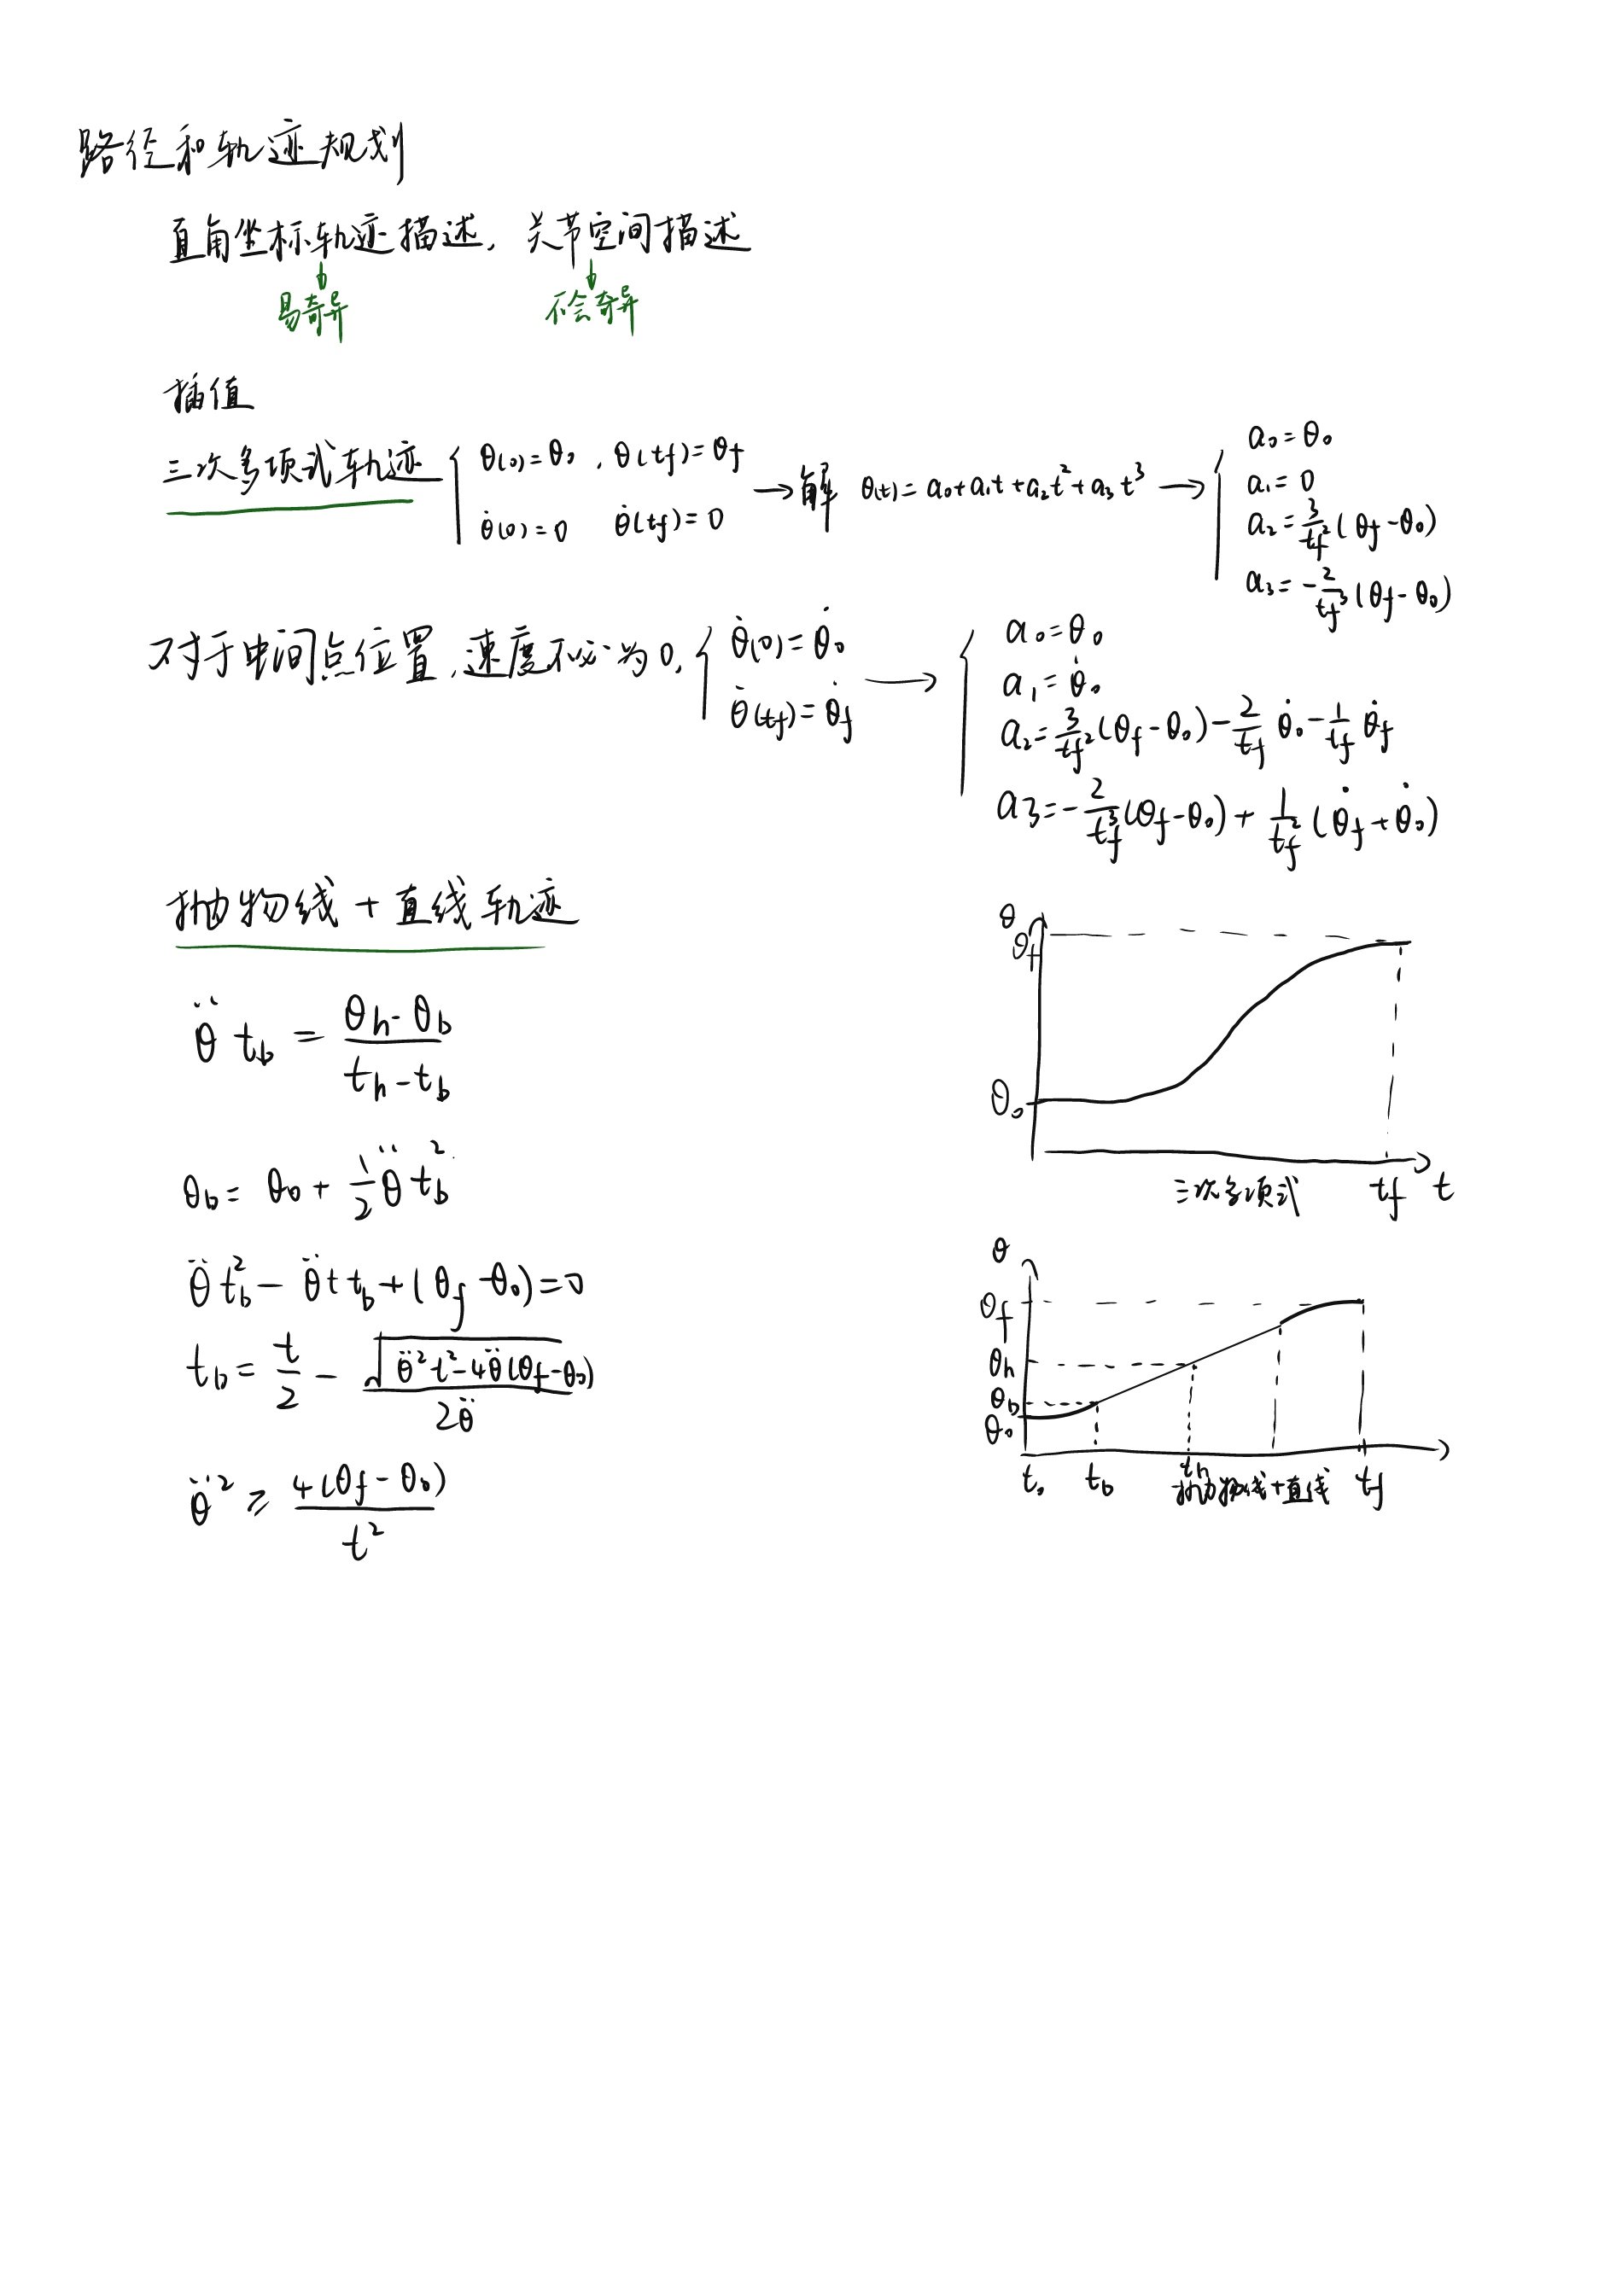 路径和轨迹规划
直角坐标轨迹描述, 关节空间描述
易奇异 不会奇异
插值
三次多项式轨迹 { θ(0)=θ₀, θ(tf)=θf θ̇(0)=0 θ̇(tf)=0 → 解 θ(t)=a₀+a₁t+a₂t²+a₃t³ → {
a₀=θ₀
a₁=0
a₂=3/tf²(θf-θ₀)
a₃=-2/tf³(θf-θ₀)
对于中间点位置,速度不必为0, { θ̇(0)=θ̇₀ θ̇(tf)=θ̇f → {
a₀=θ₀
a₁=θ̇₀
a₂=3/tf²(θf-θ₀)-2/tf θ̇₀-1/tf θ̇f
a₃=-2/tf³(θf-θ₀)+1/tf²(θ̇f+θ̇₀)
抛物线+直线轨迹
θ̈ tb = (θh-θb)/(th-tb)
θb=θ₀+1/2 θ̈ tb²
θ̈ tb²-θ̈ t tb+(θf-θ₀)=0
tb=t/2-√(θ̈²t²-4θ̈(θf-θ₀))/2θ̈
θ̈² ≥ 4(θf-θ₀)/t²
θ
θf
θ₀
三次多项式 tf t
θ
θf
θh
θb
θ₀
t₀ tb th tf
抛物线+直线